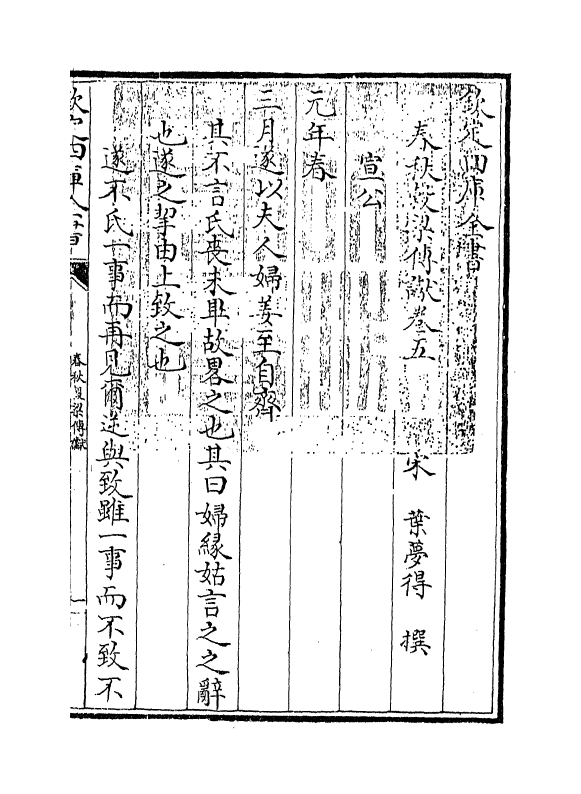 欽定四庫全書
春秋穀梁傳讞卷五
宋 葉夢得 撰
宣公
元年春
三月遂以夫人婦姜至自齊
其不言氏喪未畢故畧之也其曰婦緣姑言之之辭
也遂之挈由上致之也
遂不氏一事而再見爾逆與致雖一事而不致不
欽定四庫全書
春秋穀梁傳讞
一